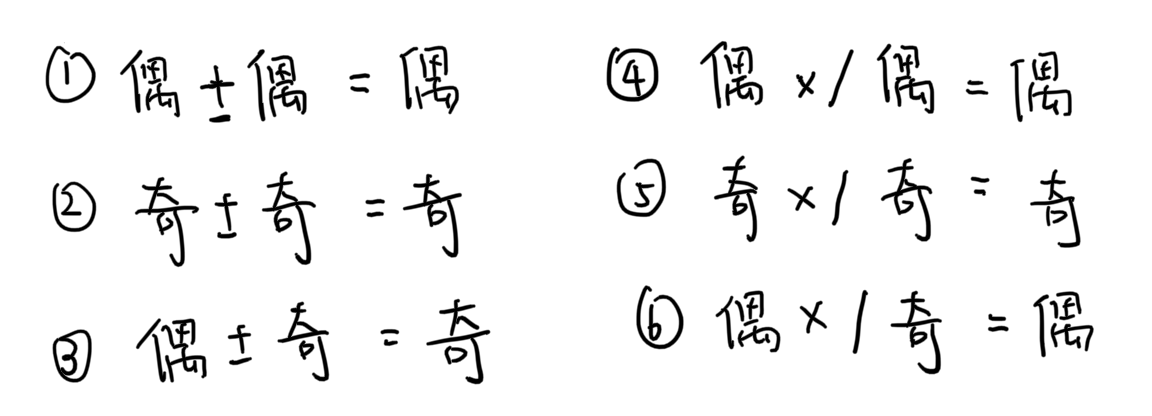 ① 偶 ± 偶 = 偶
② 奇 ± 奇 = 奇
③ 偶 ± 奇 = 奇
④ 偶 × / 偶 = 偶
⑤ 奇 × / 奇 = 奇
⑥ 偶 × / 奇 = 偶